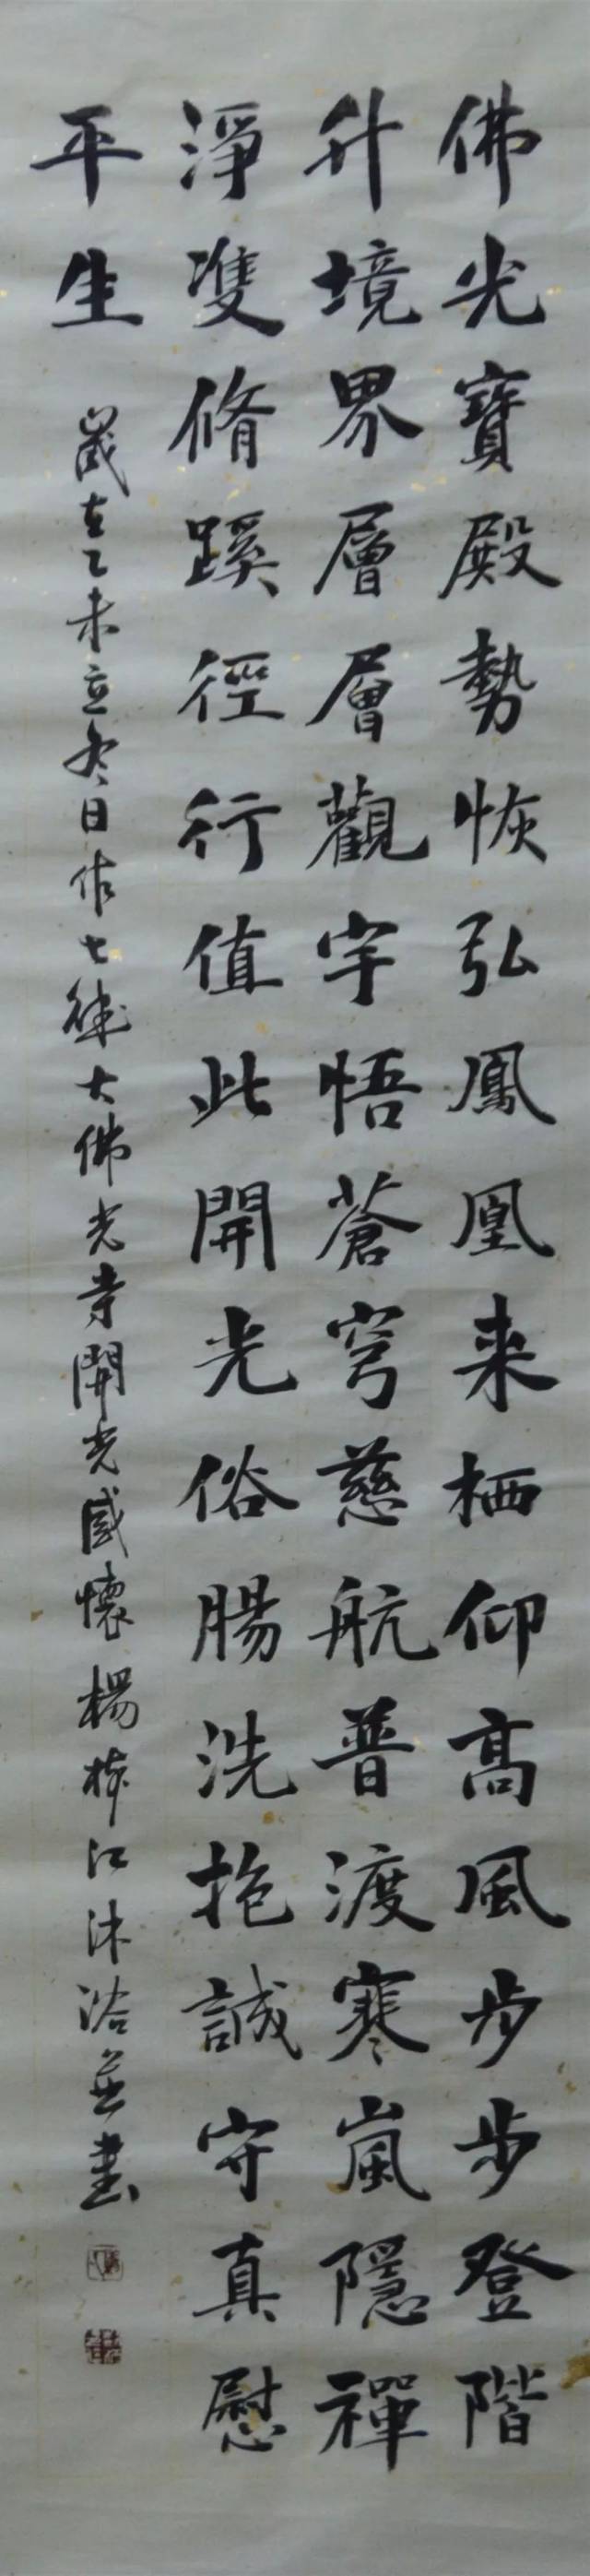 佛光寶殿勢恢弘鳳凰来栖仰高風步步登階
升境界層層觀宇悟蒼穹慈航普渡寒嵐隱禪
淨雙脩蹊徑行值此開光俗腸洗抱誠守真慰
平生
歲在乙未立冬日作七律大佛光寺開光感懷楊梓江沐浴並書